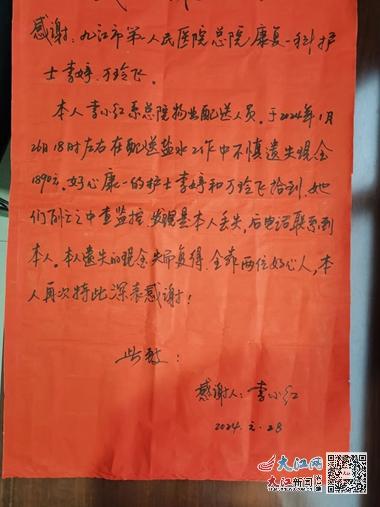 感谢:九江市第一人民医院总院康复一科护
士李婷、万玲飞。
本人李小红系总院物业配送人员。于2024年1月
26日18时左右在配送盐水工作中不慎遗失现金
1890元。好心康一的护士李婷和万玲飞拾到,她
们百忙之中查监控,发现是本人丢失,后电话联系到
本人。本人遗失的现金失而复得,全靠两位好心人,本
人再次特此深表感谢!
此致:
感谢人:李小红
2024.2.28
大江网
大江新闻